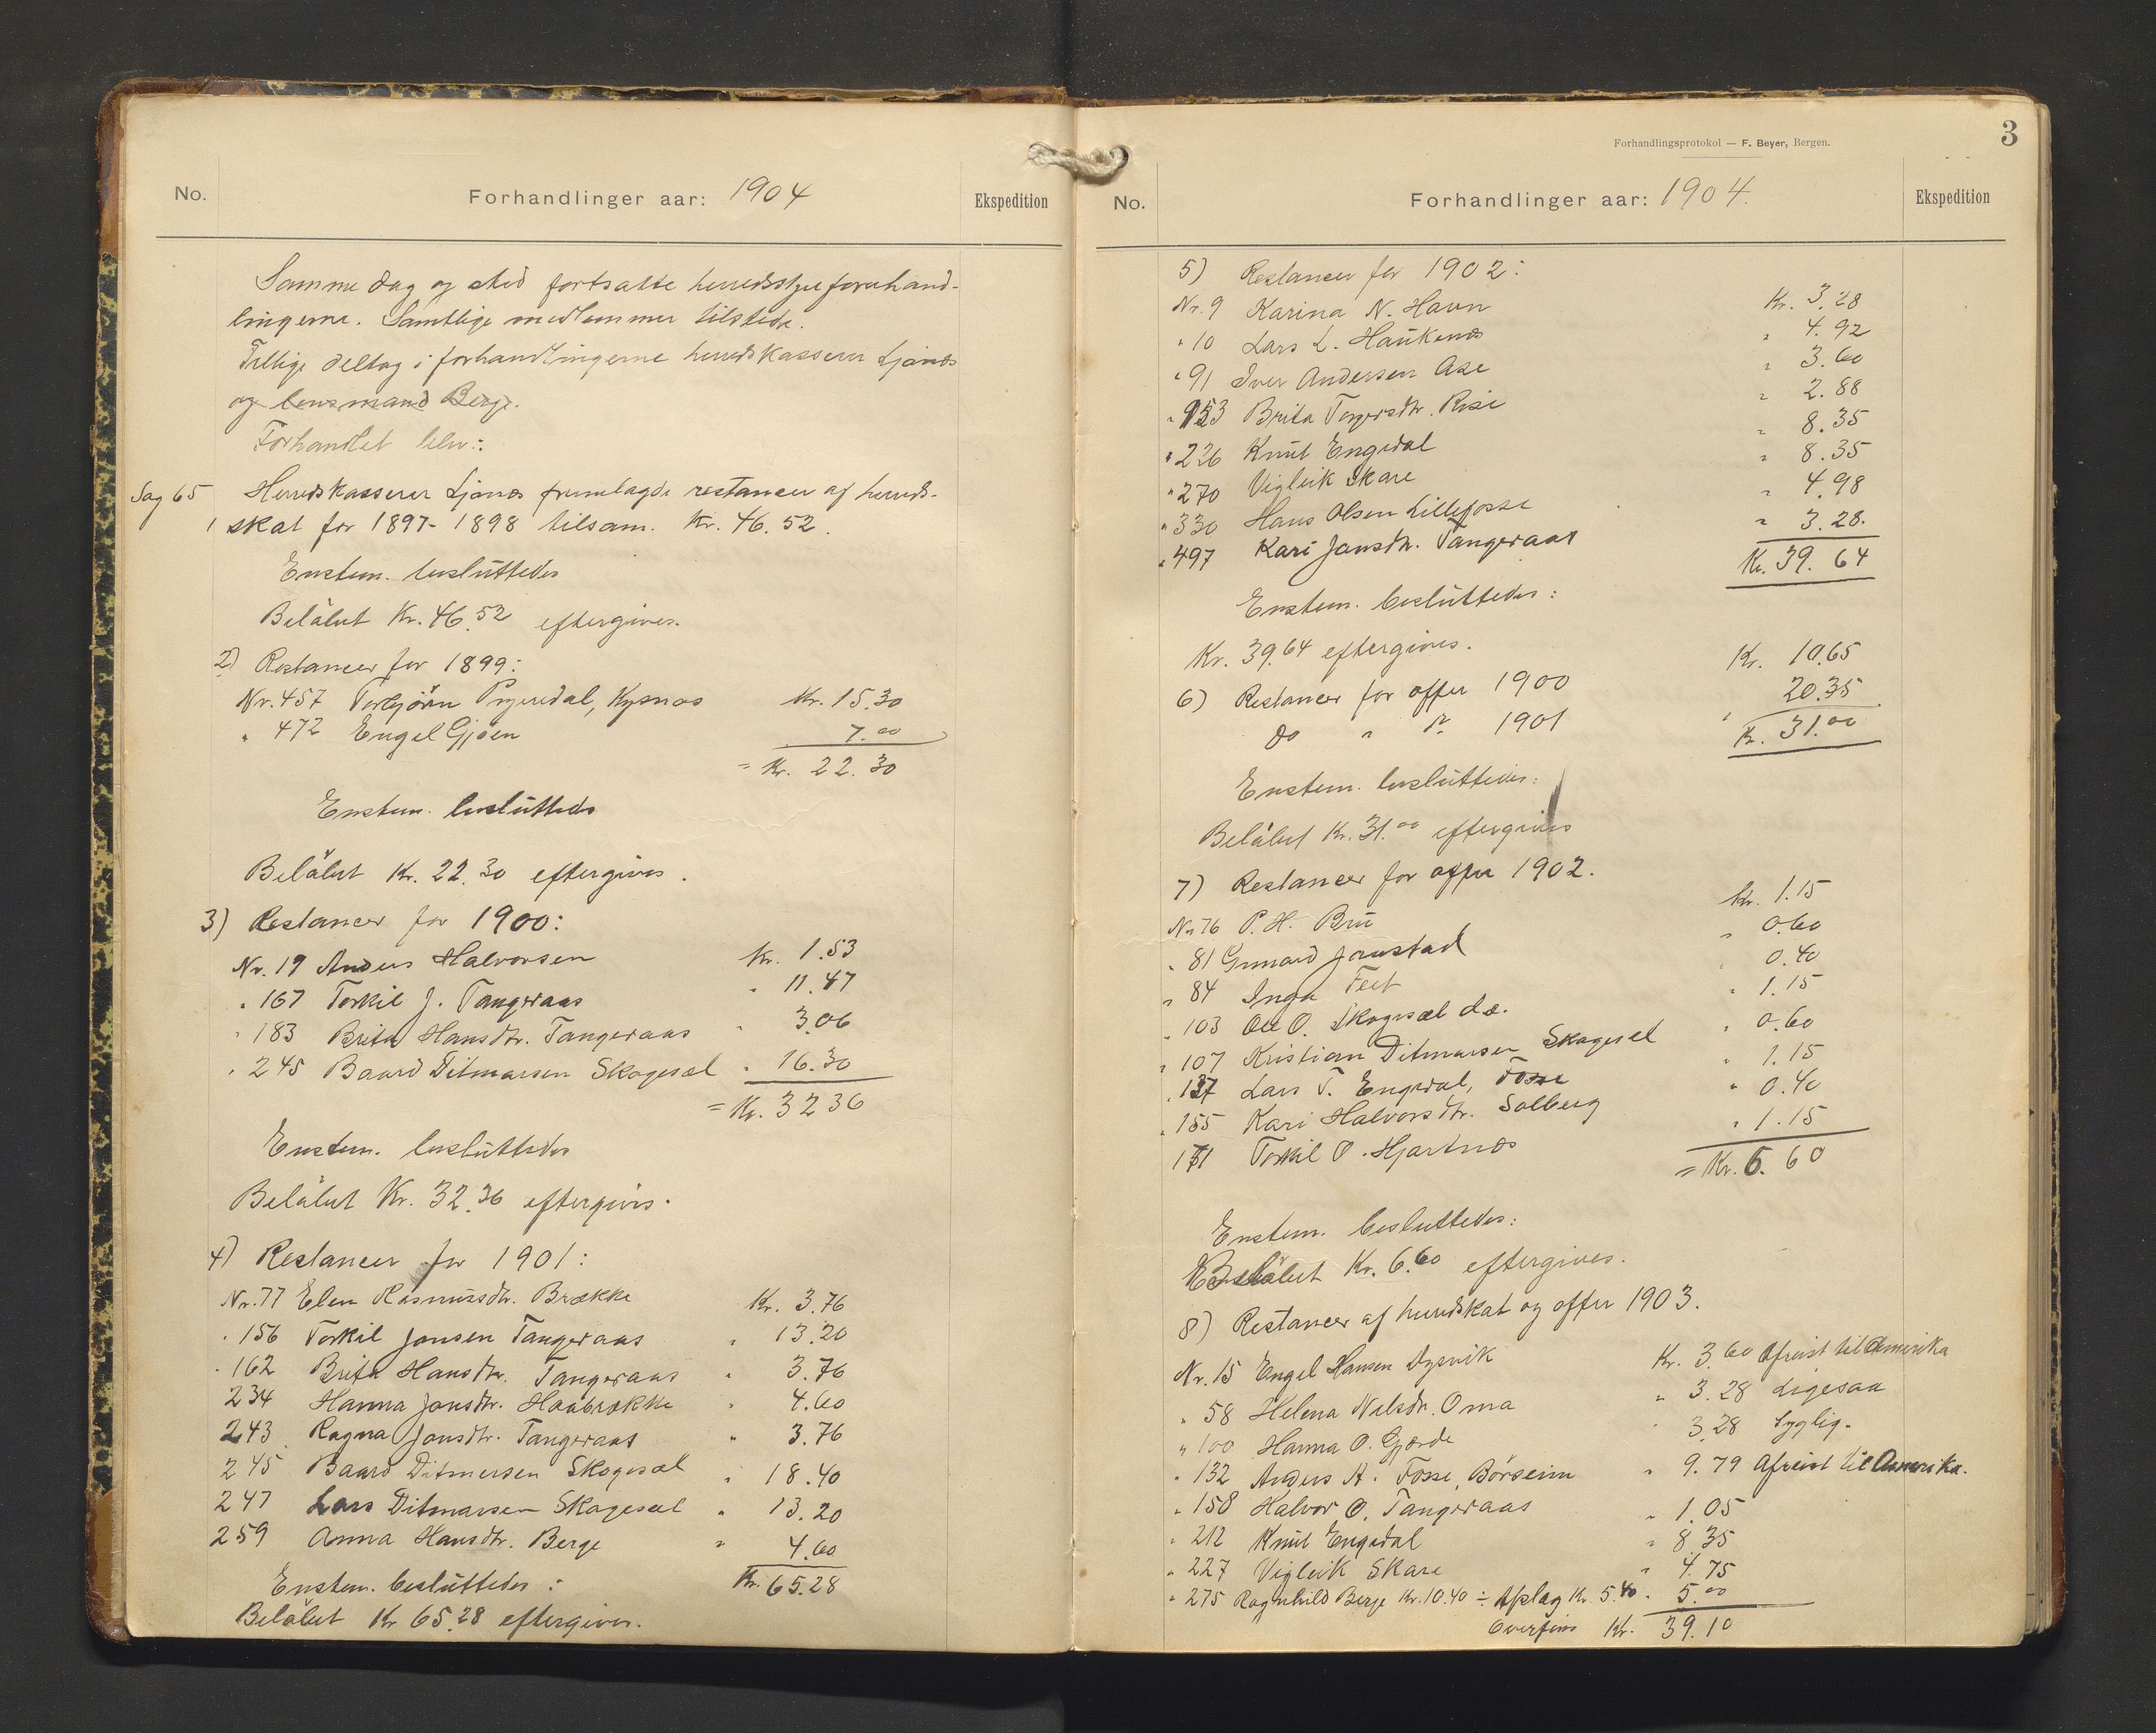 No.
Forhandlinger aar: 1904
Ekspedition
Samme dag og sted fortsatte herredsstyreforehand-
lingerne. Samtlige medlemmer tilstede.
Tillige deltog i forhandlingerne herredskasserer Ljones
og lensmand Berge.
Forhandlet blev:
Sag 65 Herredskasserer Ljones fremlagde restancer af herreds-
1 skat for 1897-1898 tilsam. Kr. 46.52.
Enstem. besluttedes
Beløbet Kr. 46.52 eftergives.
2) Restancer for 1899:
Nr. 457 Torbjörn Kysnæs Kr. 15.30
" 472 Engel Gjöen 7.00
= Kr. 22.30
Enstem. besluttedes
Beløbet Kr. 22.30 eftergives.
3) Restancer for 1900:
Nr. 19 Anders Halvorsen Kr. 1.53
" 167 Torkil J. Tangeraas " 11.47
" 183 Brita Hansdtr. Tangeraas " 3.06
" 245 Baard Ditmarsen Skogesæl " 16.30
= Kr. 32 36
Enstem. besluttedes
Beløbet Kr. 32.36 eftergives.
4) Restancer for 1901:
Nr. 77 Elen Rasmusdtr. Brække Kr. 3.76
" 156 Torkil Jonsen Tangeraas " 13.20
" 162 Brita Hansdtr. Tangeraas " 3.76
234 Hanna Jonsdtr. Haabrække " 4.60
243 Ragna Jonsdtr. Tangeraas " 3.76
245 Baard Ditmersen Skogesæl " 18.40
247 Lars Ditmarsen Skogesæl " 13.20
259 Anna Hansdtr. Berge " 4.60
Enstem. besluttedes: Kr. 65.28
Beløbet Kr 65.28 eftergives.
3
Forhandlingsprotokol — F. Beyer, Bergen.
No.
Forhandlinger aar: 1904.
Ekspedition
5) Restancer for 1902:
Nr. 9 Karina N. Havn Kr. 3.28
" 10 Lars L. Haukenæs " 4.92
" 91 Iver Andersen Axe " 3.60
" 153 Brita Torgersdtr. Rise " 2.88
" 226 Knut Engedal " 8.35
" 270 Vigleik Skare " 8.35
" 330 Hans Olsen Lillefosse " 4.98
" 497 Kari Jonsdtr. Tangeraas " 3.28.
Kr. 39.64
Enstem. besluttedes:
Kr. 39.64 eftergives.
6) Restancer for offer 1900 Kr. 10.65
do " " 1901 " 20.35
Kr. 31.00
Enstem. besluttedes:
Beløbet Kr. 31.00 eftergives
7) Restancer for offer 1902.
Nr 76 P. H. Bru Kr. 1.15
" 81 Gunvard Jonstad " 0.60
" 84 Inga Feet " 0.40
" 103 Ole O. Skogesæl d.æ. " 1.15
" 107 Kristian Ditmarsen Skogesel " 0.60
" 137 Lars T. Engedal, Fosse " 1.15
" 155 Kari Halvorsdtr. Solberg " 0.40
171 Torkil O. Hjartnæs " 1.15
= Kr. 6.60
Enstem. besluttedes:
Beløbet Kr. 6.60 eftergives.
8) Restancer af herredskat og offer 1903.
Nr. 15 Engel Hansen Dysvik Kr. 3.60 Afreist til Amerika
" 58 Helena Nilsdr. Oma " 3.28 Ligesaa
" 100 Hanna O. Gjerde " 3.28 Syglig.
" 132 Anders A. Fosse, Børseim " 9.79 Afreist til Amerika.
" 158 Halvor O. Tangeraas " 1.05
" 212 Knut Engedal " 8.35
" 227 Vigleik Skare " 4.75
" 275 Ragnhild Berge Kr. 10.40 ÷ Afslag Kr. 5.40 " 5.00
Overføres Kr. 39.10